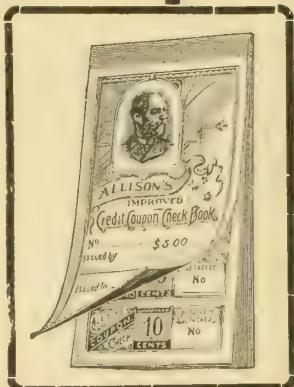 ALLISON'S
IMPROVED
Credit Coupon Check Book
No $5.00
Issued by
Issued to
CENTS No
COUPON 10 No
CHECK CENTS